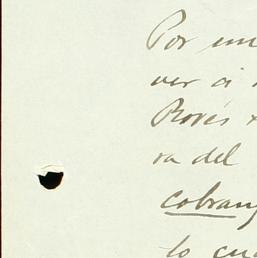 Por un
ver á
Rovés
ra del
cobran
lo cu